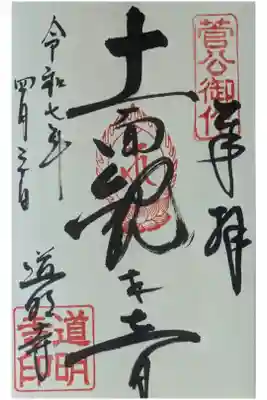 奉拝
菅公御作
十一面観世音
令和七年
四月
道明寺
道明
寺印